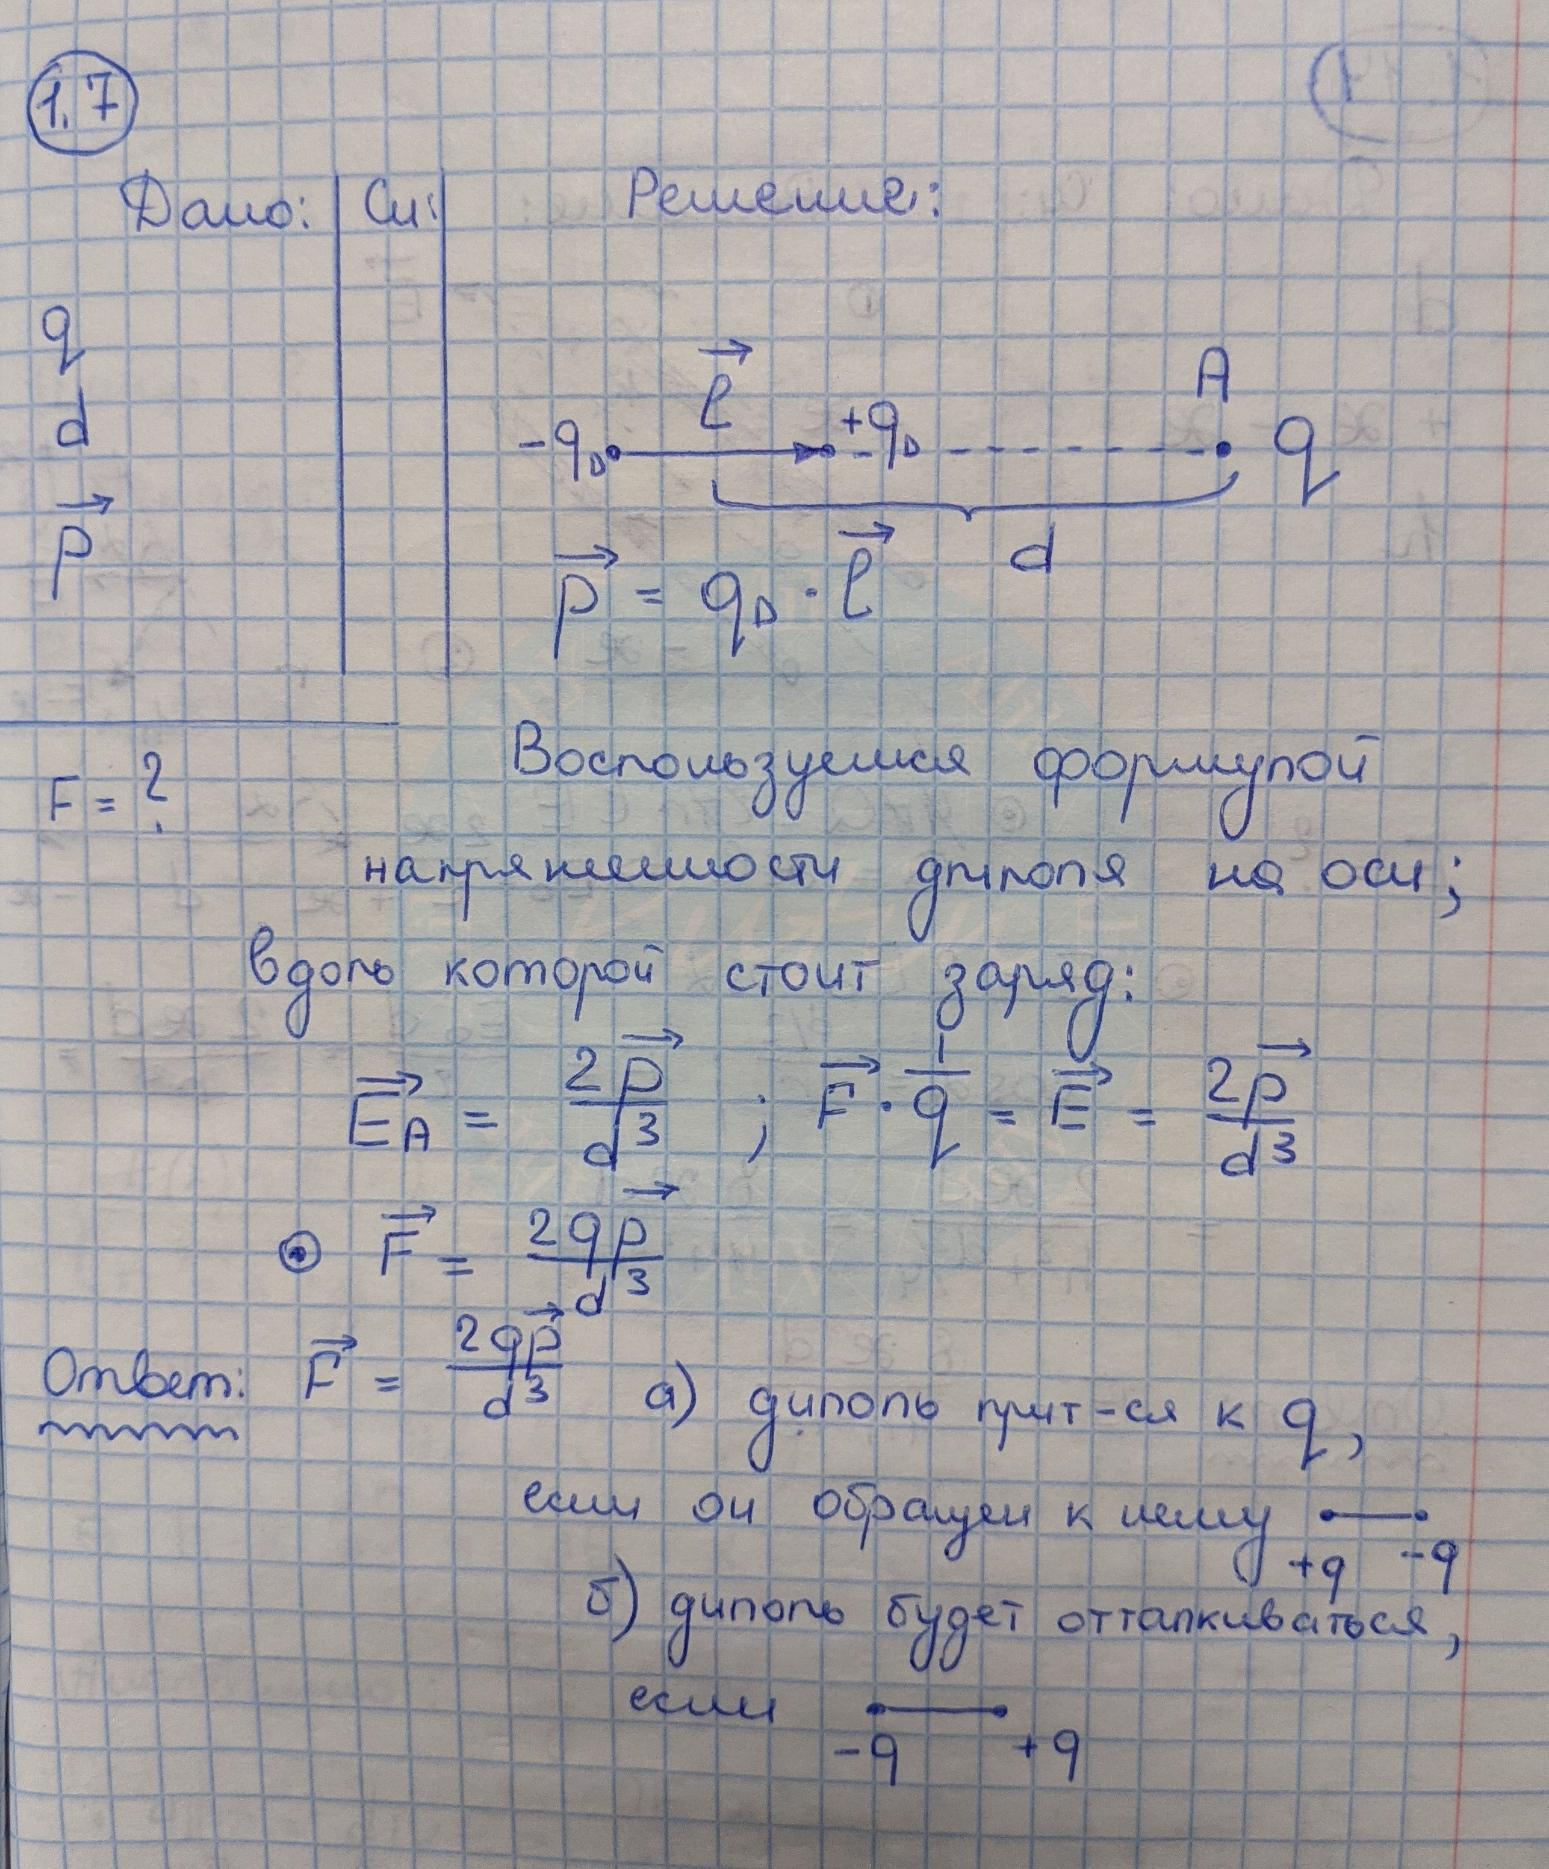 1.7
Дано: Си: Решение:
q
d
p⃗
l⃗
-q_D +q_D A q
d
p⃗ = q_D · l⃗
F = ?
Воспользуемся формулой
напряженности диполя на оси;
вдоль которой стоит заряд:
E⃗_A = 2p⃗/d³ ; F⃗ · 1/q = E⃗ = 2p⃗/d³
⊙ F⃗ = 2qp⃗/d³
Ответ: F⃗ = 2qp⃗/d³ а) диполь прит-ся к q,
если он обращен к нему
+q -q
б) диполь будет отталкиваться,
если
-q +q